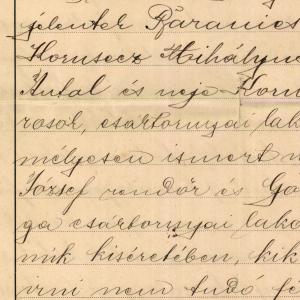 jelentek Baranics
Kornsecz Mihályné
Antal és neje Korn
rosol, csáktornyai lak
mélyesen ismert
József rendőr és Go
ga csáktornyai lako
mik kiséretében, kik
irni nem tudó fe